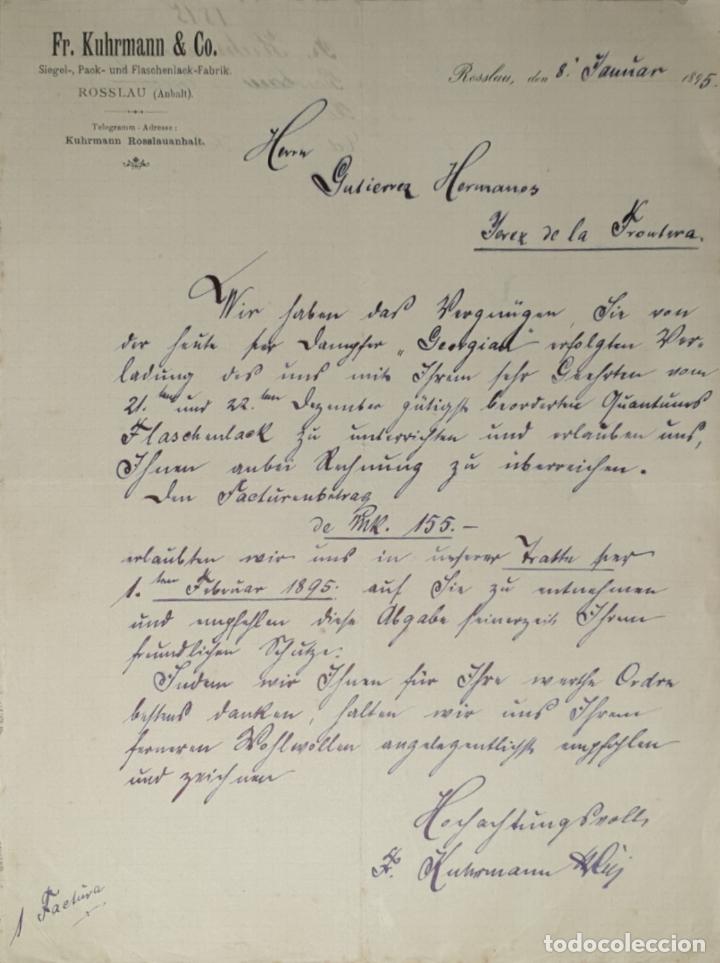 Fr. Kuhrmann & Co.
Siegel-, Pack- und Flaschenlack-Fabrik.
ROSSLAU (Anhalt).
Telegramm-Adresse:
Kuhrmann Rosslauanhalt.
Rosslau, den 8. Januar 1895.
Herrn
Gutierrez Hermanos
Jerez de la Frontera.
Wir haben das Vergnügen, Sie von
der heute per Dampfer „Georgian" erfolgten Ver-
ladung des uns mit Ihrem sehr Geehrten vom
21.ten und 22.ten Dezember gütigst beorderten Quantums
Flaschenlack zu unterrichten und erlauben uns,
Ihnen anbei Rechnung zu überreichen.
Den Facturenbetrag
de Mk. 155.-
erlaubten wir uns in unserer Tratte per
1.ten Februar 1895. auf Sie zu entnehmen
und empfehlen diese Abgabe seinerzeit Ihrem
freundlichen Schutze.
Indem wir Ihnen für Ihre werthe Ordre
bestens danken, halten wir uns Ihrem
ferneren Wohlwollen angelegentlichst empfohlen
und zeichnen
Hochachtungsvoll
Fr. Kuhrmann
1 Factura
todocoleccion